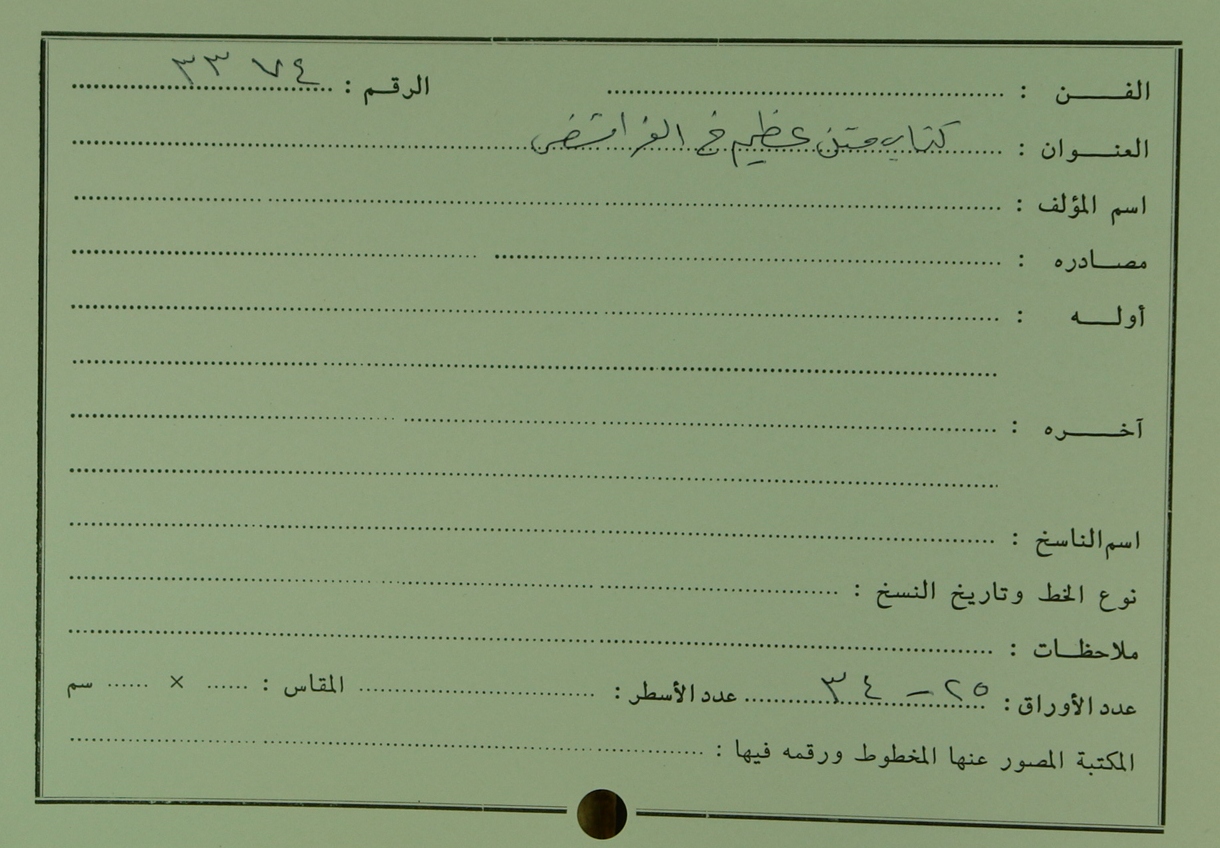 الفن : الرقم : ٣٣٧٤
العنوان : كتاب متن عظيم في الفرائض
اسم المؤلف :
مصادره :
أوله :
آخره :
اسم الناسخ :
نوع الخط وتاريخ النسخ :
ملاحظات :
عدد الأوراق : ٢٥ - ٣٤ عدد الأسطر : المقاس : × سم
المكتبة المصور عنها المخطوط ورقمه فيها :